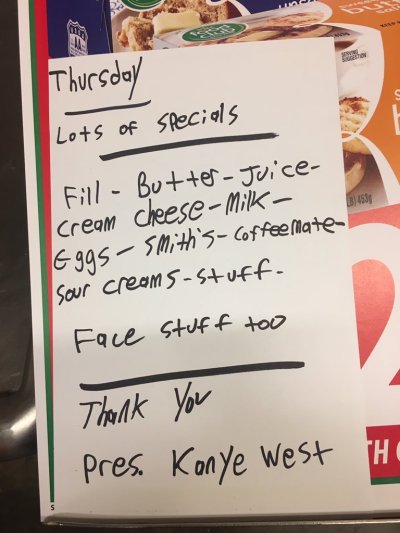 Thursday
Lots of specials
Fill - Butter - Juice -
cream cheese - Milk -
Eggs - Smith's - Coffeemate -
sour creams - stuff -
Face stuff too
Thank You
Pres. Kanye West
SERVING
SUGGESTION
LB) 453g
TH